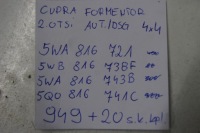 CUPRA FORMENTOR
2.0TSI AUT./DSG 4x4
5WA 816 721
5WB 816 73BF
5WA 816 743B
5Q0 816 741C
949 + 20 s.k. kpl.